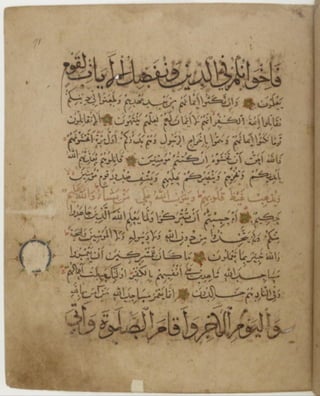 فاخوانكم في الدين ونفصل الآيات لقوم
يعلمون وان نكثوا ايمانهم من بعد عهدهم وطعنوا في دينكم
فقاتلوا ائمة الكفر انهم لا ايمان لهم لعلهم ينتهون الا تقاتلون
قوما نكثوا ايمانهم وهموا باخراج الرسول وهم بدؤكم اول مرة اتخشونهم
فالله احق ان تخشوه ان كنتم مؤمنين قاتلوهم يعذبهم الله
بايديكم ويخزهم وينصركم عليهم ويشف صدور قوم مؤمنين
ويذهب غيظ قلوبهم ويتوب الله على من يشاء والله عليم
حكيم ام حسبتم ان تتركوا ولما يعلم الله الذين جاهدوا
منكم ولم يتخذوا من دون الله ولا رسوله ولا المؤمنين وليجة
والله خبير بما تعملون ما كان للمشركين ان يعمروا
مساجد الله شاهدين على انفسهم بالكفر اولئك حبطت اعمالهم
وفي النار هم خالدون انما يعمر مساجد الله من آمن بالله
واليوم الآخر واقام الصلوة وآتى